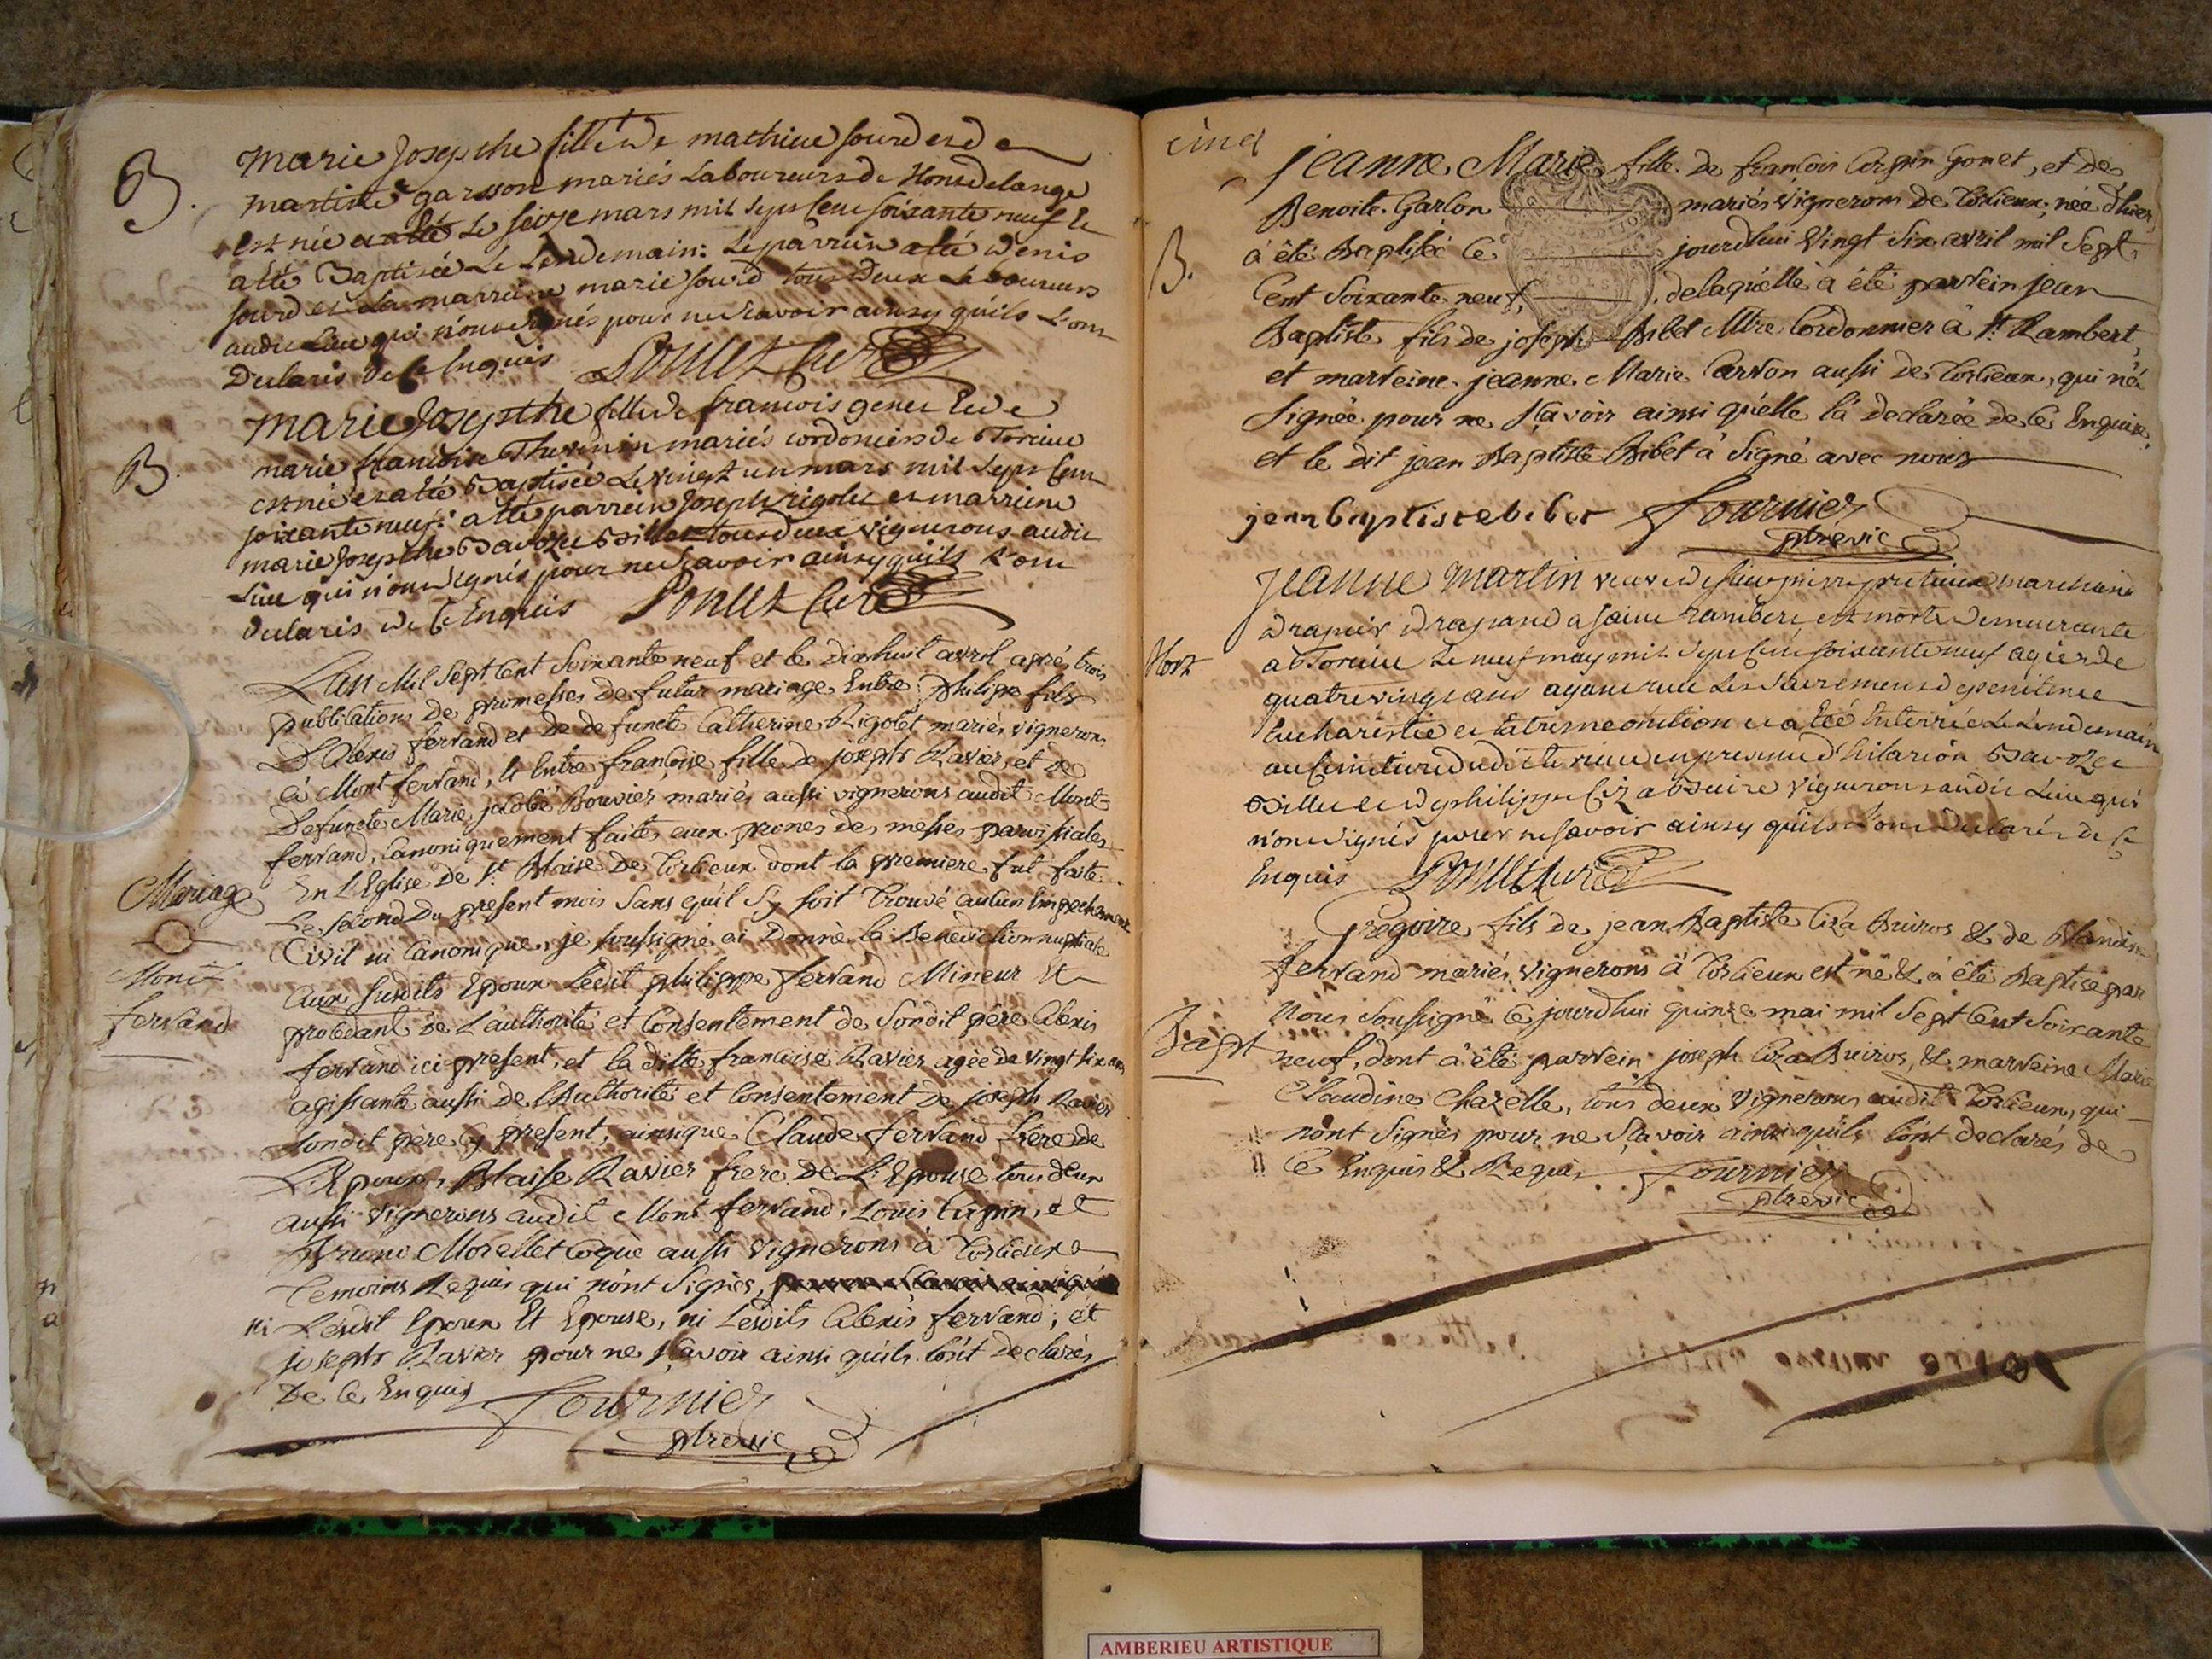 B.
Marie Josepthe fille de mathieu sourd et de
martine garsson mariés Laboureurs de
est née Le seize mars mil sept cent soixante neuf et
a été Baptisée Le Lendemain: Le parrein a été Denis
sourd et La marreine marie sourd tous deux Laboureurs
audit Lieu qui n'ont signés pour ne scavoir ainsy quils L'ont
declaris de ce Enquis curé
B.
Marie Josepthe fille de francois genet et de
marie francoise Thevenin mariés cordoniers de Torcieu
est née et a été Baptisée Le vingt un mars mil sept cent
soixante neuf: a été parrein Joseph rigolet et marreine
marie Josepthe tous deux vignerons audit
Lieu qui n'ont signés pour ne scavoir ainsy quils L'ont
declaris de ce Enquis curé
Mariage
Mont
ferrand
L'an Mil Sept Cent Soixante neuf et le dixhuit avril aprés trois
publications de promesses de futur mariage Entre philippe fils
D'Alexis ferrand et de defuncte Catherine Rigolet mariés vignerons
à Mont ferrand, et Entre françoise fille de joseph Ravier et de
Defuncte Marie Bouvier mariés aussi vignerons audit Mont-
ferrand, Canoniquement faites aux prones des messes paroissiales
En L'Eglise de St Blaise De Torcieux dont la premiere fut faite
Le second Du present mois Sans quil S'y soit Trouvé aucun Empechement
Civil ni Canonique, je soussigné ai Donné la Benediction nuptiale
aux susdits Epoux Ledit philippe ferrand Mineur et
procedant de L'authorité et Consentement de Sondit pére Alexis
ferrand ici present, et la ditte francoise Ravier agée de vingt six ans
agissante aussi de l'Authorité et Consentement De joseph Ravier
Sondit pére Cy present, ainsique Claude ferrand frere de
L'Epoux, Blaise Ravier frere De L'Epouse tous deux
aussi vignerons audit Mont ferrand, Louis et
Bruno Morellet aussi vignerons à Torcieux
Temoins Requis qui n'ont Signés,
ni Lesdit Epoux Et Epouse, ni Lesdits Alexis ferrand, et
joseph Ravier pour ne sçavoir ainsi quils l'ont declarés
De ce Enquis Fournier
ptre vic
cinq
B.
Jeanne Marie fille de francois gonet, et de
Benoite Garçon mariés Vignerons de Torcieux, née d'hier,
à été Baptisée Ce jourdhui Vingt Six avril mil Sept
Cent Soixante neuf, delaquelle à été parrein jean
Baptiste fils de joseph Bibet Mtre Cordonnier à St Rambert,
et marreine jeanne Marie Carron aussi de Torcieux, qui n'à
Signée pour ne sçavoir ainsi quelle l'à declarée de ce Enquise.
et le dit jean Baptiste Bibet à Signé avec nous
jean baptiste bibet Fournier
ptre vic
Mort
Jeanne Martin veuve de sieur pierre marchand
drapier a saint rambert est morte demeurante
a Torcieu Le neuf may mil sept cent soixante neuf agée de
quatre vingt ans ayant recu Les Sacremens de penitence
Eucharistie et Extreme onction et a été Enterrée Le Lendemain
au Cimetiere dudit torcieu en presence d'hilarion
et de philippe vignerons audit Lieu qui
n'ont signés pour ne scavoir ainsy quils L'ont declarés de ce
Enquis curé
Bapt
Gregoire fils de jean Baptiste & de Claudine
ferrand mariés vignerons à Torcieux est né & à été Baptisé par
Nous Soussigné ce jourdhui quinze mai mil Sept Cent Soixante
neuf, dont à été parrein joseph & marreine Marie
Claudine Chazelle, tous deux Vignerons audit Torcieux, qui
n'ont Signés pour ne Sçavoir ainsi quils l'ont declarés de
Ce Enquis & Requis Fournier
ptre vic
AMBERIEU ARTISTIQUE